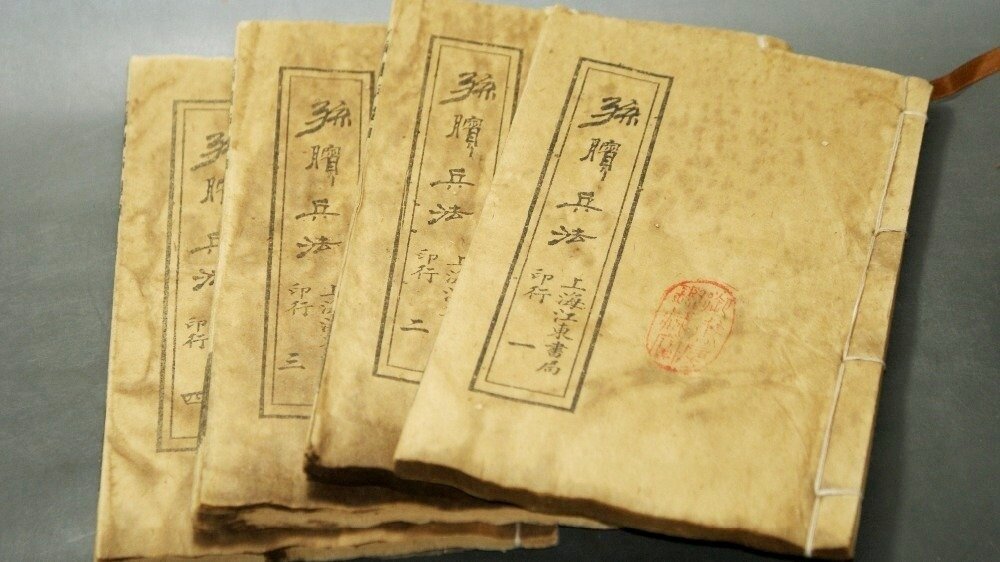 孫臏兵法
上海江東書局
印行
一
孫臏兵法
上海
印行
二
孫臏兵法
上海
印行
三
孫臏兵法
印行
四